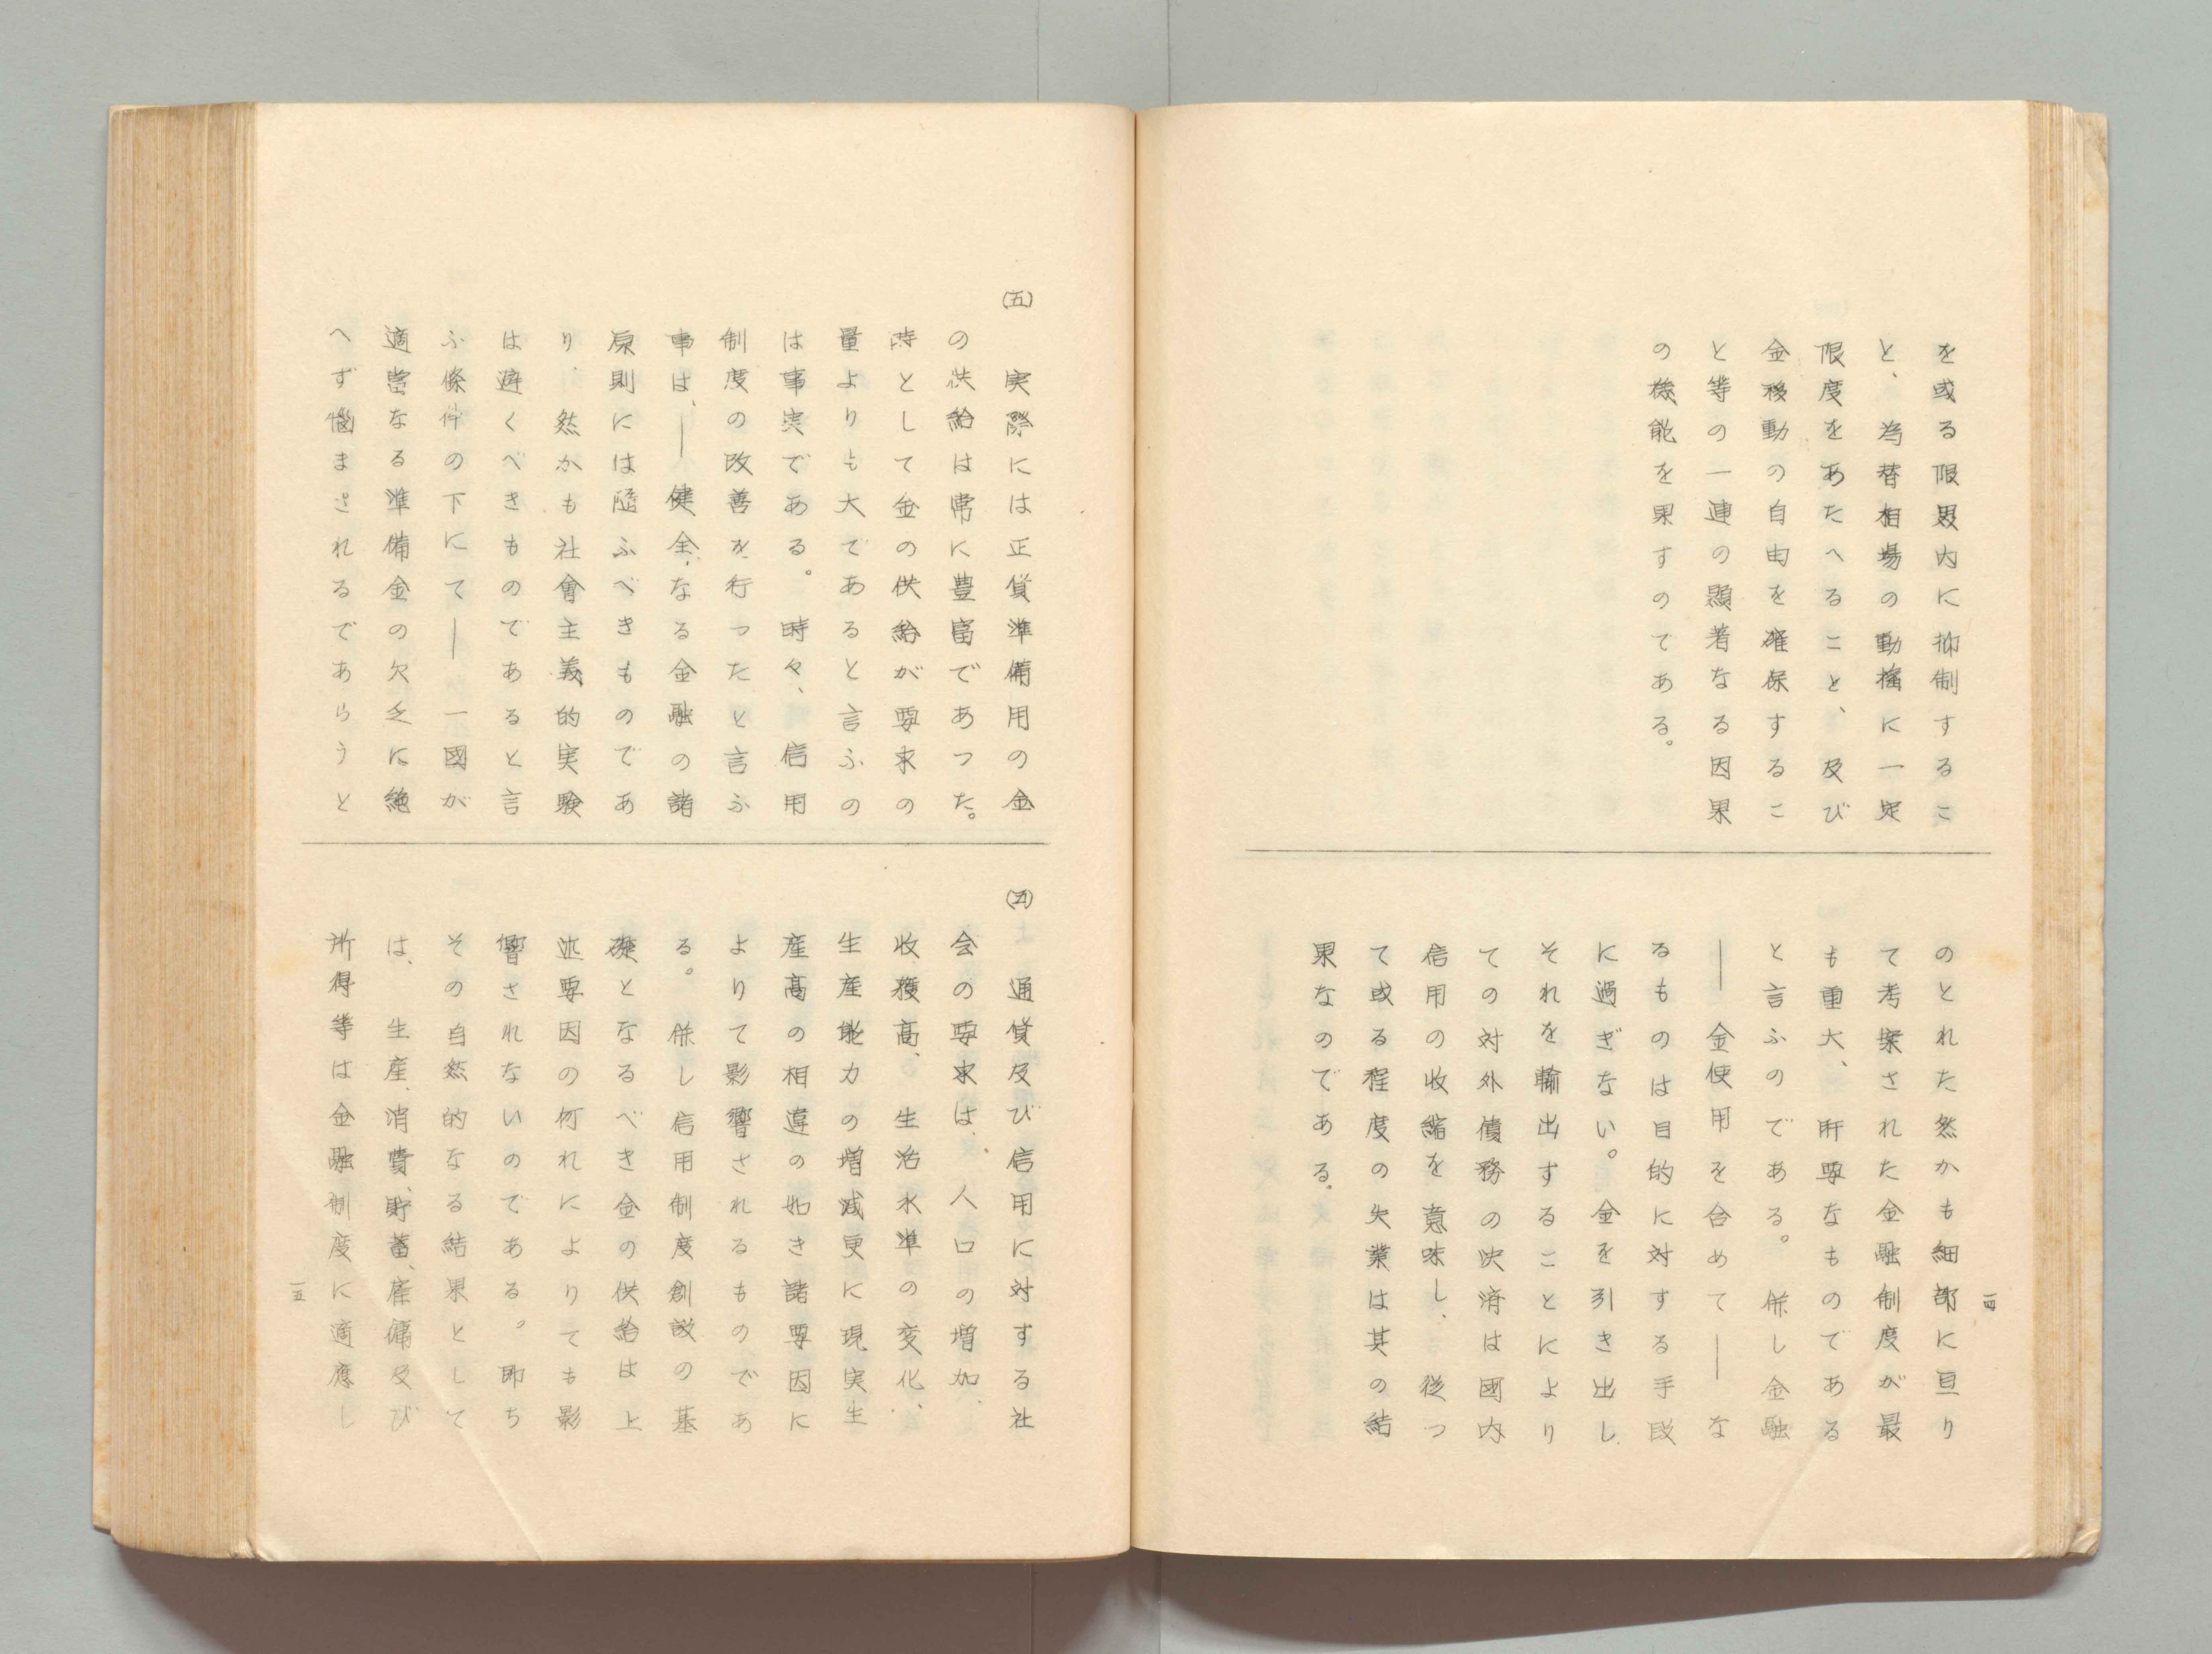 を或る限界内に抑制するこ
と、為替相場の動搖に一定
限度をあたへること、及び
金移動の自由を確保するこ
と等の一連の顯著なる因果
の機能を果すのてある。
のとれた然かも細部に亘り
て考案された金融制度が最
も重大、肝要なものである
と言ふのである。併し金融
――金使用を含めて――な
るものは目的に対する手段
に過ぎない。金を引き出し
それを輸出することにより
ての対外債務の決済は國内
信用の收縮を意味し、従つ
て或る程度の失業は其の結
果なのである。
一四
(五)
実際には正貨準備用の金
の供給は常に豊富であつた。
時として金の供給が要求の
量よりも大であると言ふの
は事実である。時々、信用
制度の改善を行つたと言ふ
事は、――健全なる金融の諸
原則には隨ふべきものであ
り、然かも社會主義的実験
は避くべきものであると言
ふ條件の下にて――一國が
適當なる準備金の欠乏に絶
へず惱まされるであらうと
(五)
通貨及び信用に対する社
会の要求は、人口の増加、
收穫高、生活水準の変化、
生産能力の増減更に現実生
産高の相違の如き諸要因に
よりて影響されるものであ
る。併し信用制度創設の基
礎となるべき金の供給は上
述要因の何れによりても影
響されないのである。即ち
その自然的なる結果として
は、生産、消費、貯蓄、雇傭及び
所得等は金融制度に適應し
一五